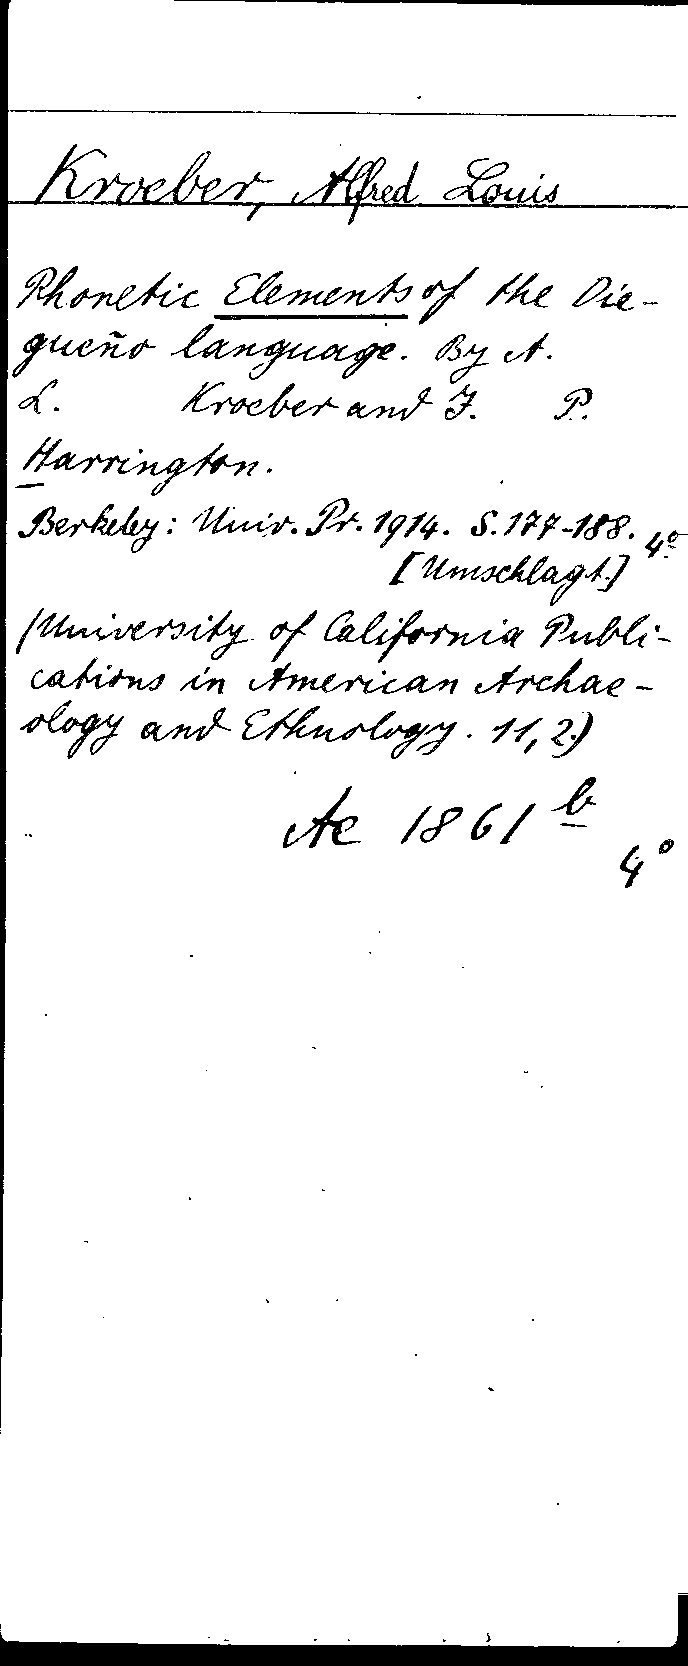 Kroeber, Alfred Louis
Phonetic Elements of the Die-
gueño language. By A.
L. Kroeber and J. P.
Harrington.
Berkeley: Univ. Pr. 1914. S. 177-188. 4°
[Umschlagt.]
(University of California Publi-
cations in American Archae-
ology and Ethnology. 11, 2.)
Ac 1861 b
4°